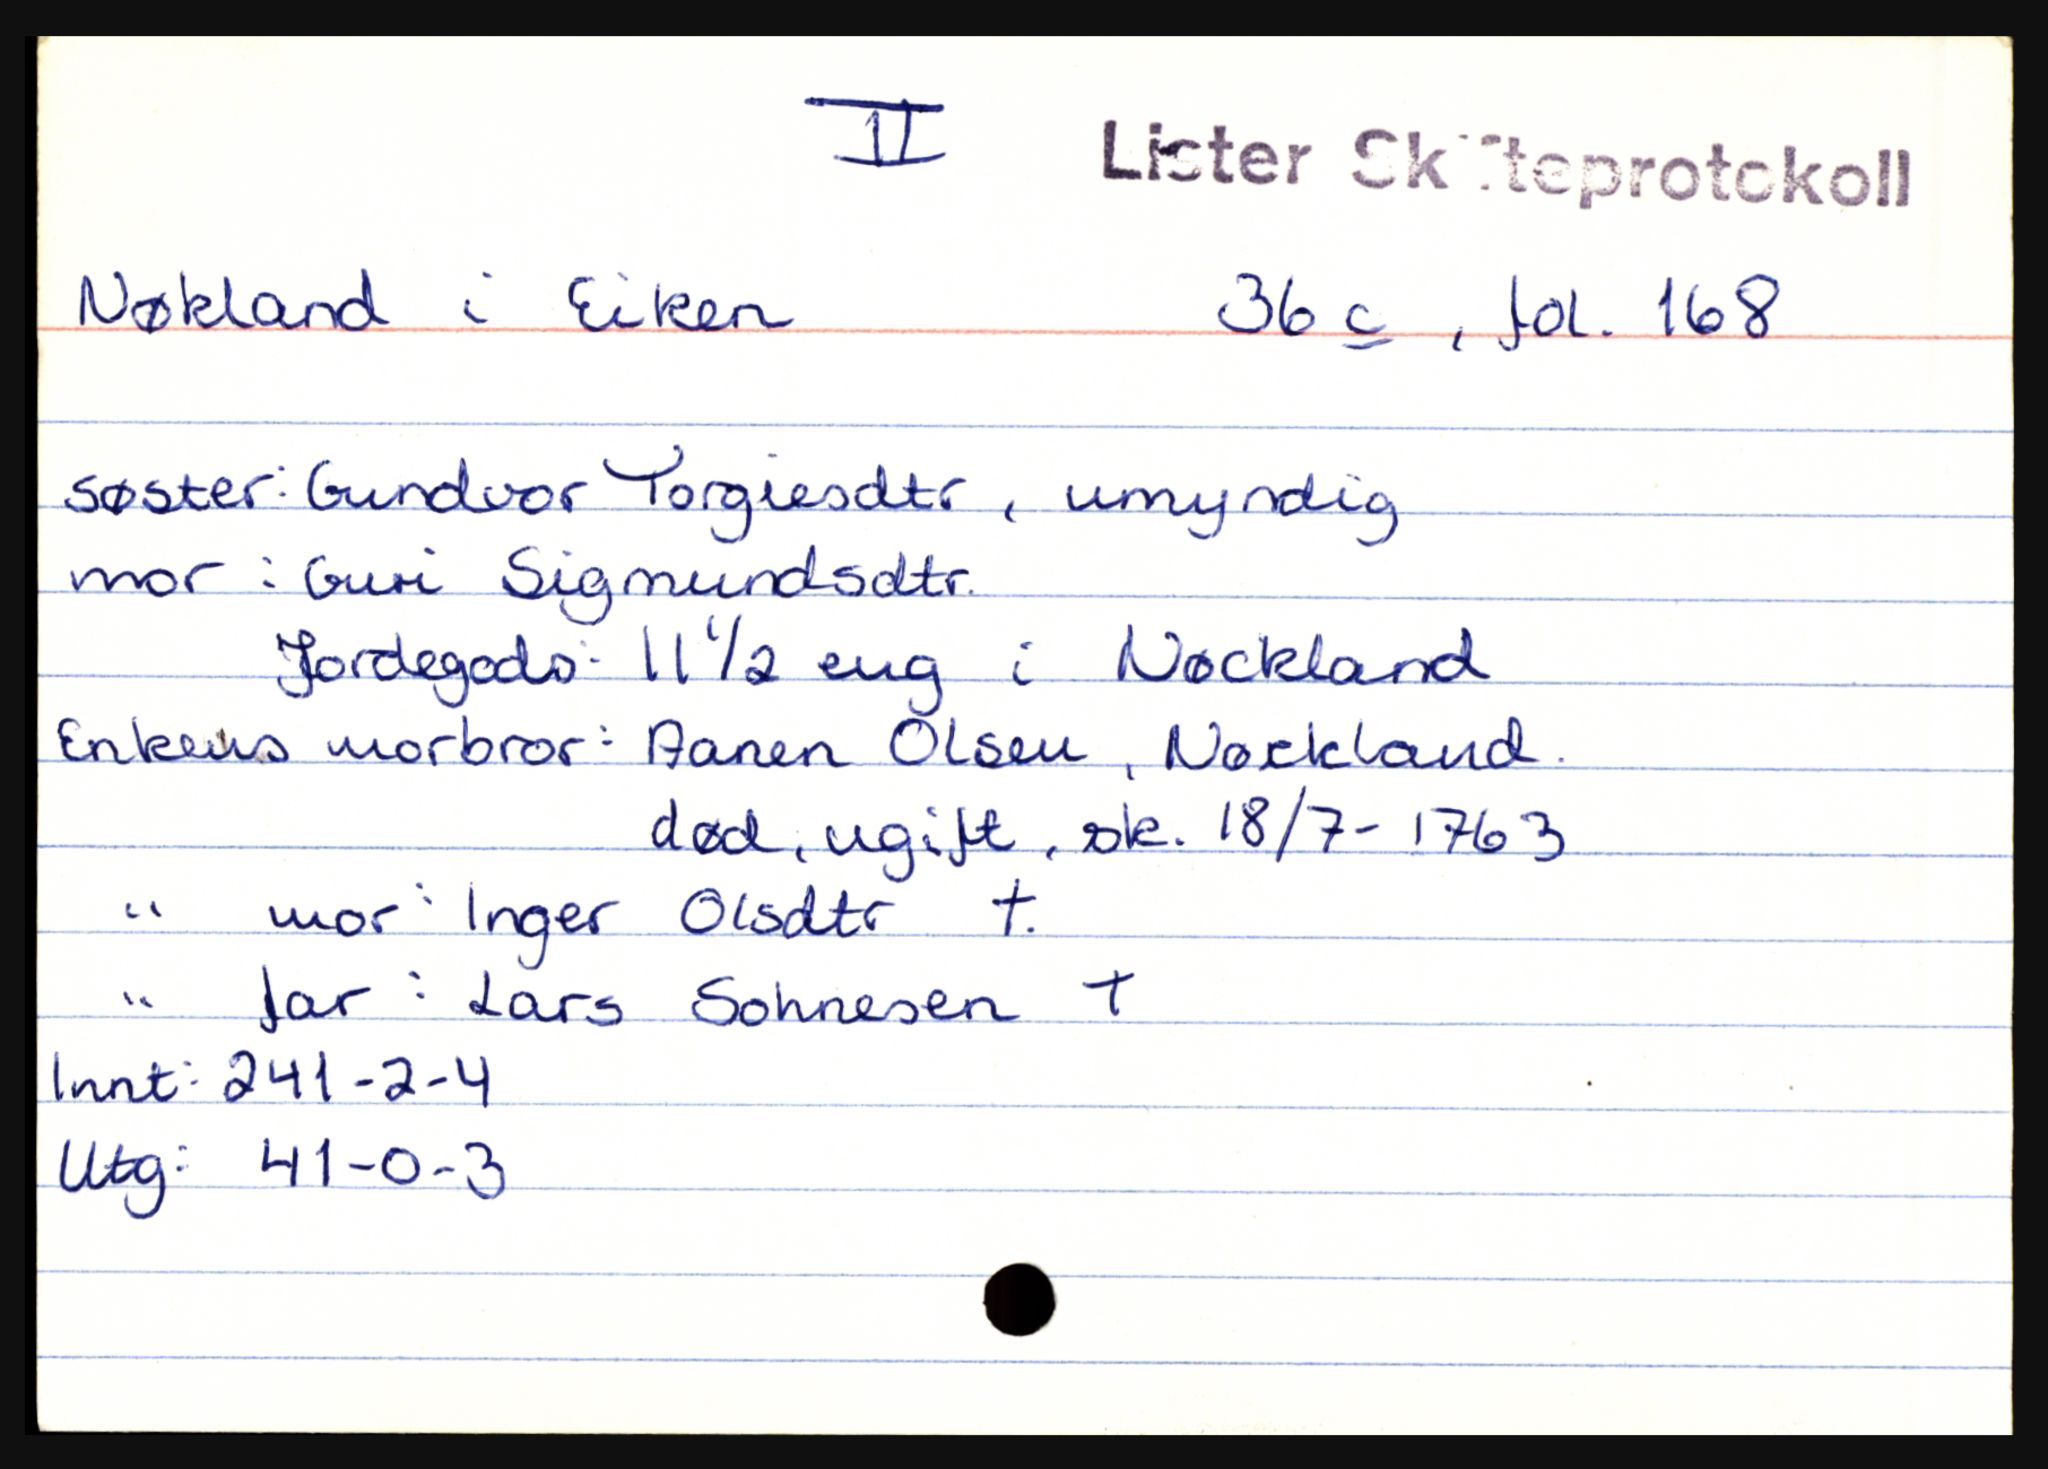 II
Lister Skifteprotokoll
Nøkland i Eiken 36 c, fol. 168
søster: Gundvor Torgiesdtr, umyndig
mor : Guri Sigmundsdtr.
Jordegods: 11 1/2 eng i Nøckland
Enkens morbror: Aanen Olsen, Nøckland.
død, ugift, sk. 18/7- 1763
" mor: Inger Olsdtr †.
" far : Lars Sohnesen †
Innt: 241-2-4
Utg: 41-0-3